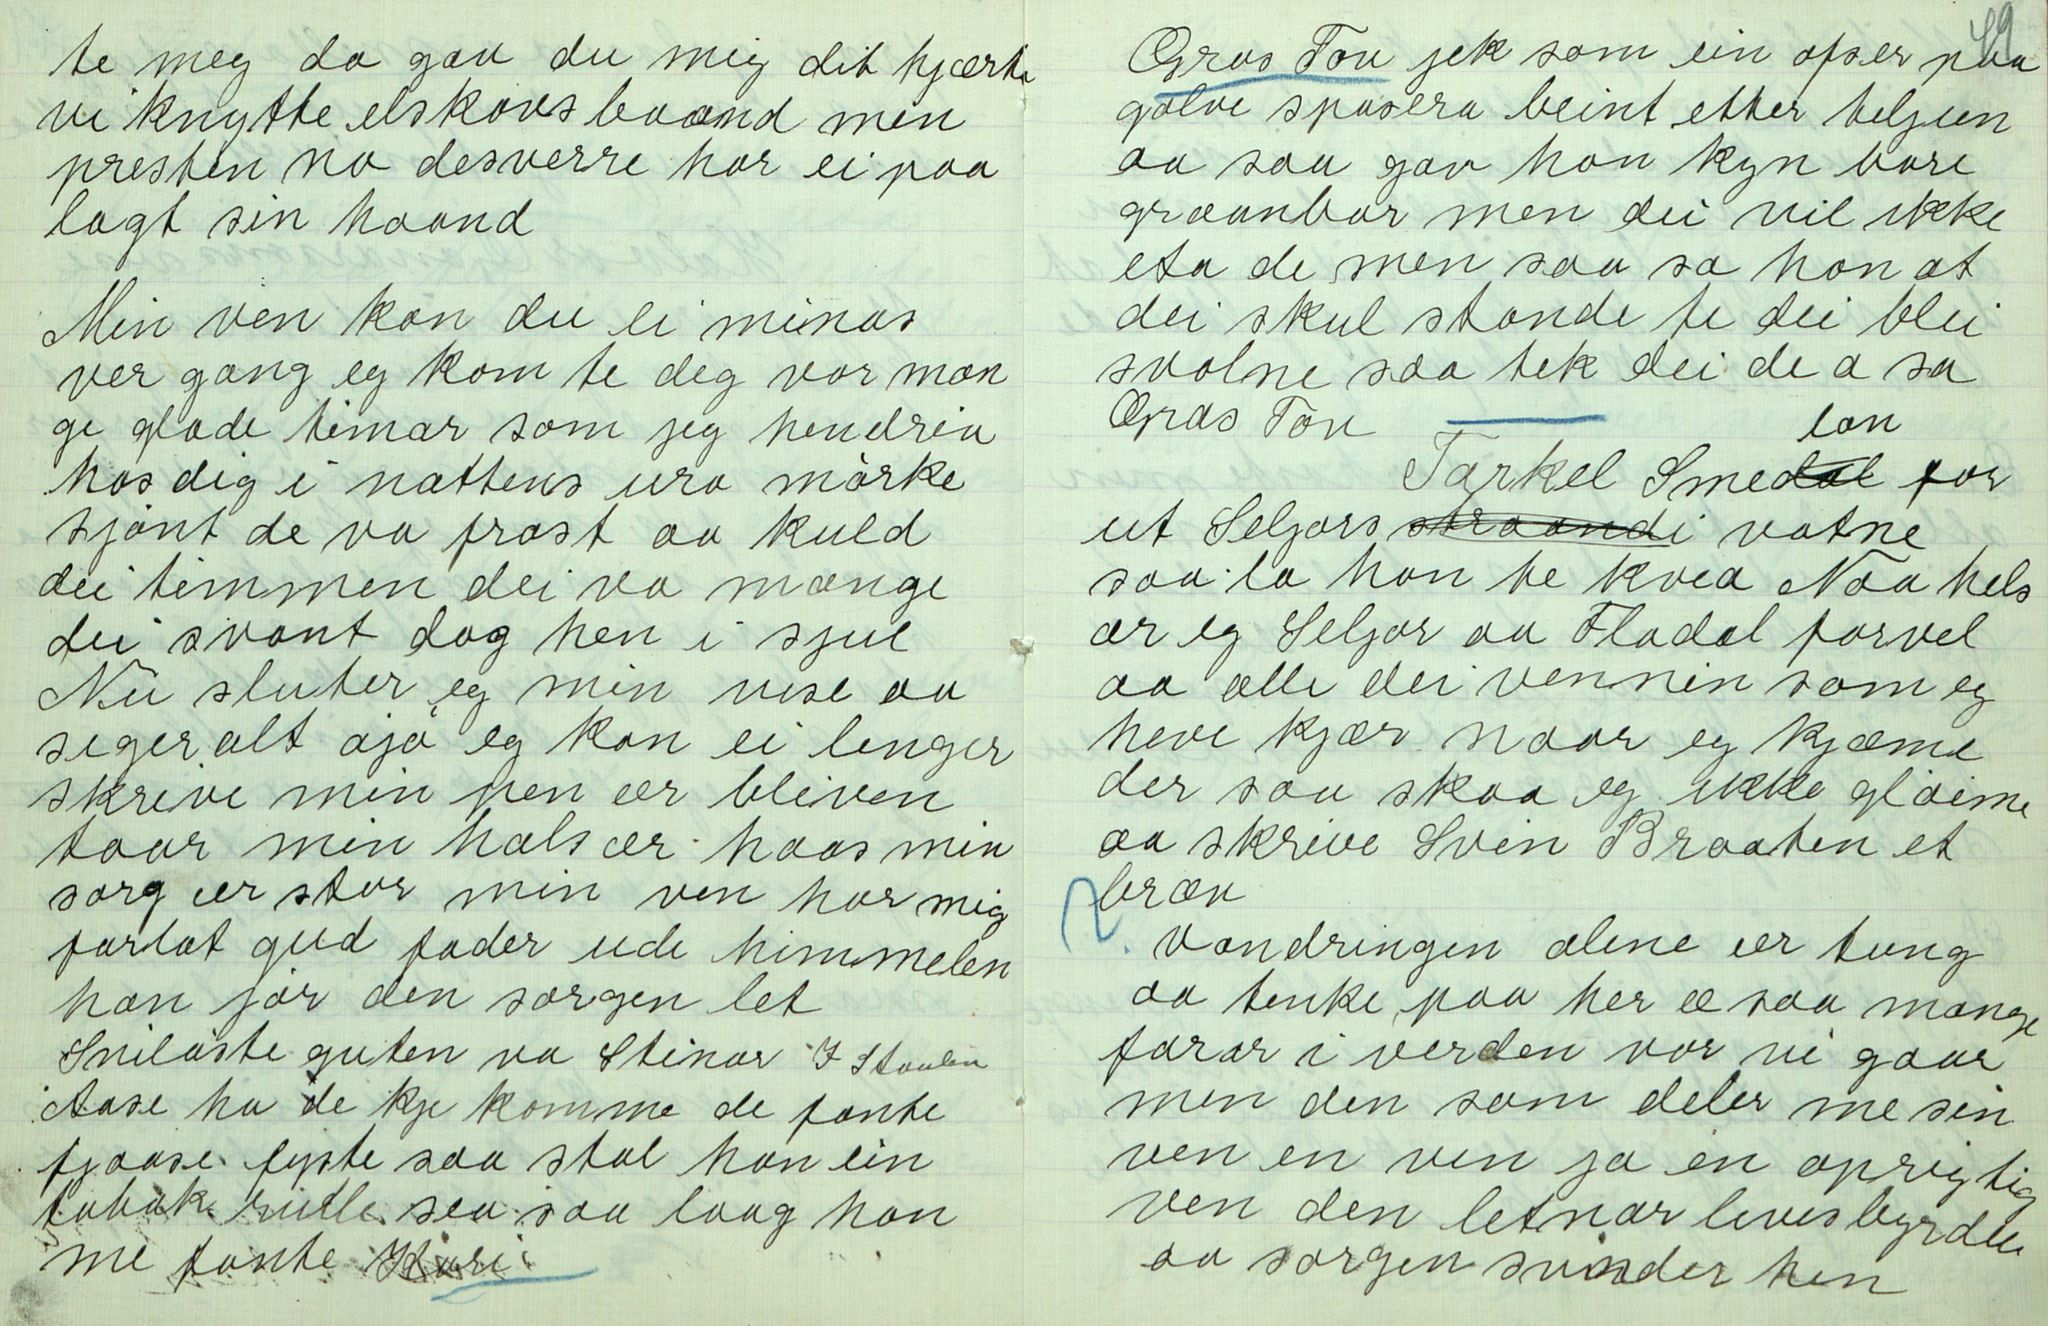 te meg da gav du mig dit hjærte
vi knytte elskovsbaand men
presten na desverre har ei paa
lagt sin haand
Min ven kan du ei minas
ver gang eg kom te deg var man
ge glade timar som jeg hendrev
hos dig i nattens ura mörke
sjönt de va frost aa kuld
dei timmen dei va mange
dei svant dog hen i sjul
Nu sluter eg min vise aa
seger alt ajö eg kan ei lenger
skrive min pen er bliven
taar min hals er haas min
sorg er stor min ven har mig
forlat gud fader ude himmelen
han jör den sorgen let
Snilaste guten va Steinar I Staulen
Aase ha de kje komme de fante
fjaase fyste saa stal han ein
tabak rudle sea saa laag han
me fante Kari
49
Gras Tov jek som ein ofser paa
golve spasera beint etter teljun
aa saa gav han kyn bare
graanbar men dei vil ikke
eta de men saa sa han at
dei skul stande te dei blei
svolne saa tek dei de a sa
Gras Tov
lan
Tarkel Smedal for
ut Seljors straandi vatne
saa la han te kvea Naa hels
ar eg Seljor aa Fladal farvel
aa alle dei vennin som eg
heve kjær naar eg kjæme
der saa skaa eg ikke glöime
aa skrive Svin Braaten et
bræv
Vandringen alene er tung
aa tenke paa her æ saa mange
farar i verden vor vi gaar
men den som deler me sin
ven en ven ja en oprigtig
ven den letnar livesbyrden
aa sorgen svinder hen